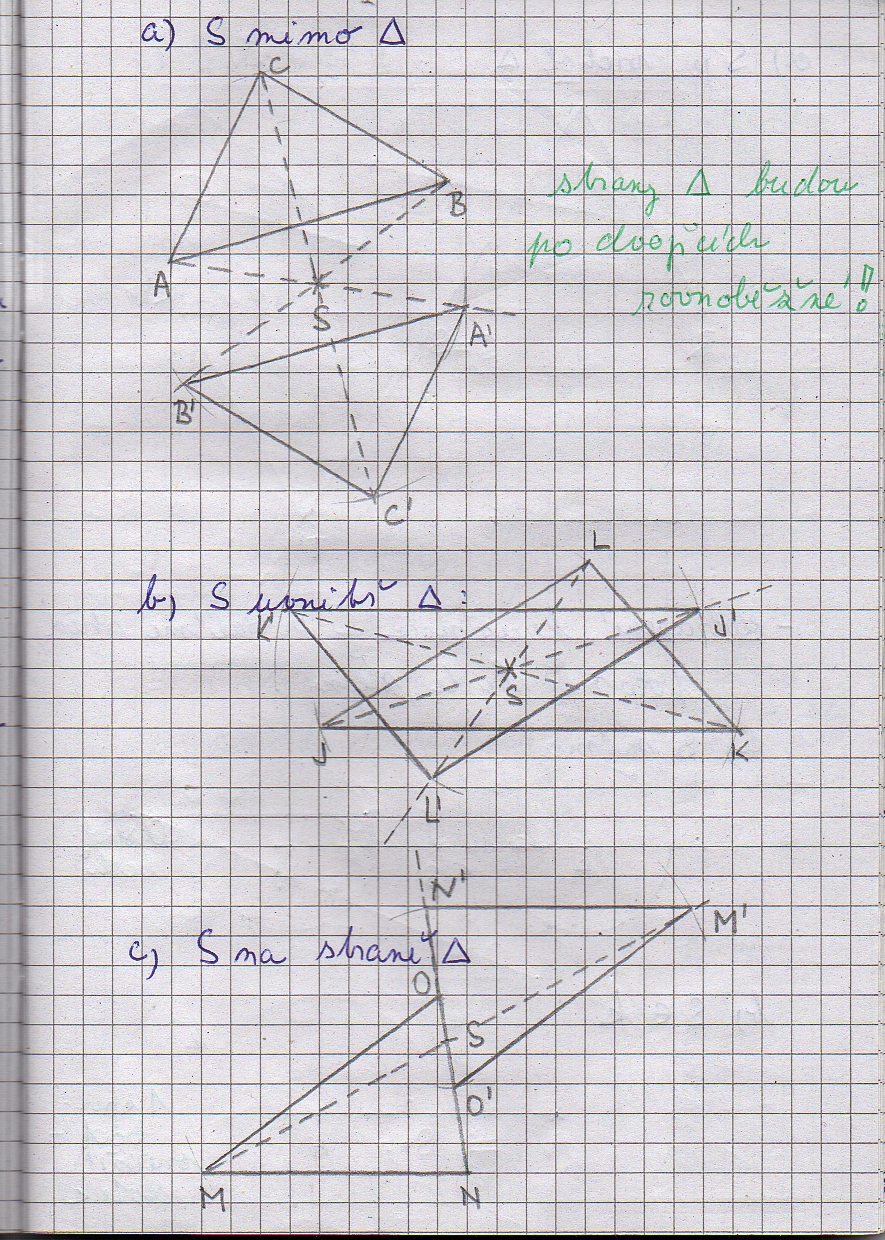 a) S mimo Δ
C
B
strany Δ budou
po dvojicích
rovnoběžné!!
A
S
A'
B'
C'
L
b) S uvnitř Δ :
K'
J'
S
J
K
L'
N'
M'
c) S na straně Δ
O
S
O'
M
N